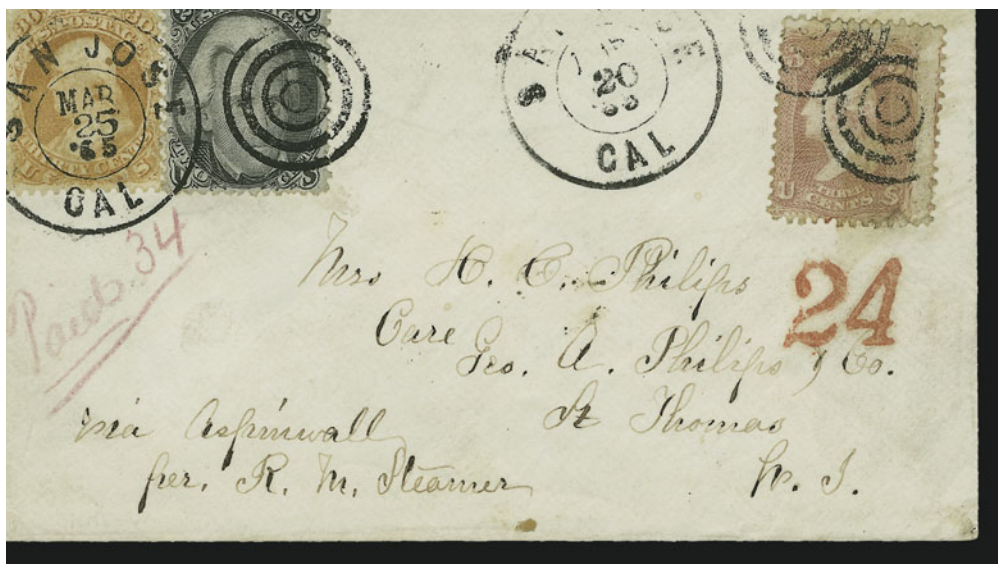 SAN JOSE
MAR
25
'65
CAL
20
CAL
THREE
CENTS
U S
Paid 34
24
Mrs H. C. Philips
Care Geo. A. Philips & Co.
St Thomas
W. I.
via Aspinwall
per. R. M. Steamer